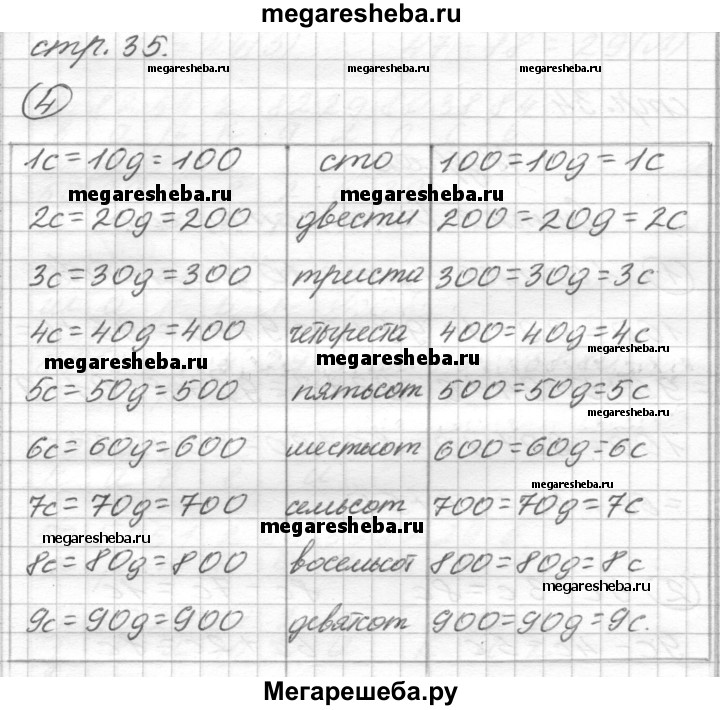 megaresheba.ru
стр. 35.
megaresheba.ru megaresheba.ru megaresheba.ru
4
1с = 10д = 100 сто 100 = 10д = 1с
megaresheba.ru megaresheba.ru
2с = 20д = 200 двести 200 = 20д = 2с
3с = 30д = 300 триста 300 = 30д = 3с
4с = 40д = 400 четыреста 400 = 40д = 4с
megaresheba.ru megaresheba.ru megaresheba.ru
5с = 50д = 500 пятьсот 500 = 50д = 5с
megaresheba.ru
6с = 60д = 600 шестьсот 600 = 60д = 6с
megaresheba.ru
7с = 70д = 700 семьсот 700 = 70д = 7с
megaresheba.ru megaresheba.ru
8с = 80д = 800 восемьсот 800 = 80д = 8с
megaresheba.ru
9с = 90д = 900 девятсот 900 = 90д = 9с.
Мегарешеба.ру